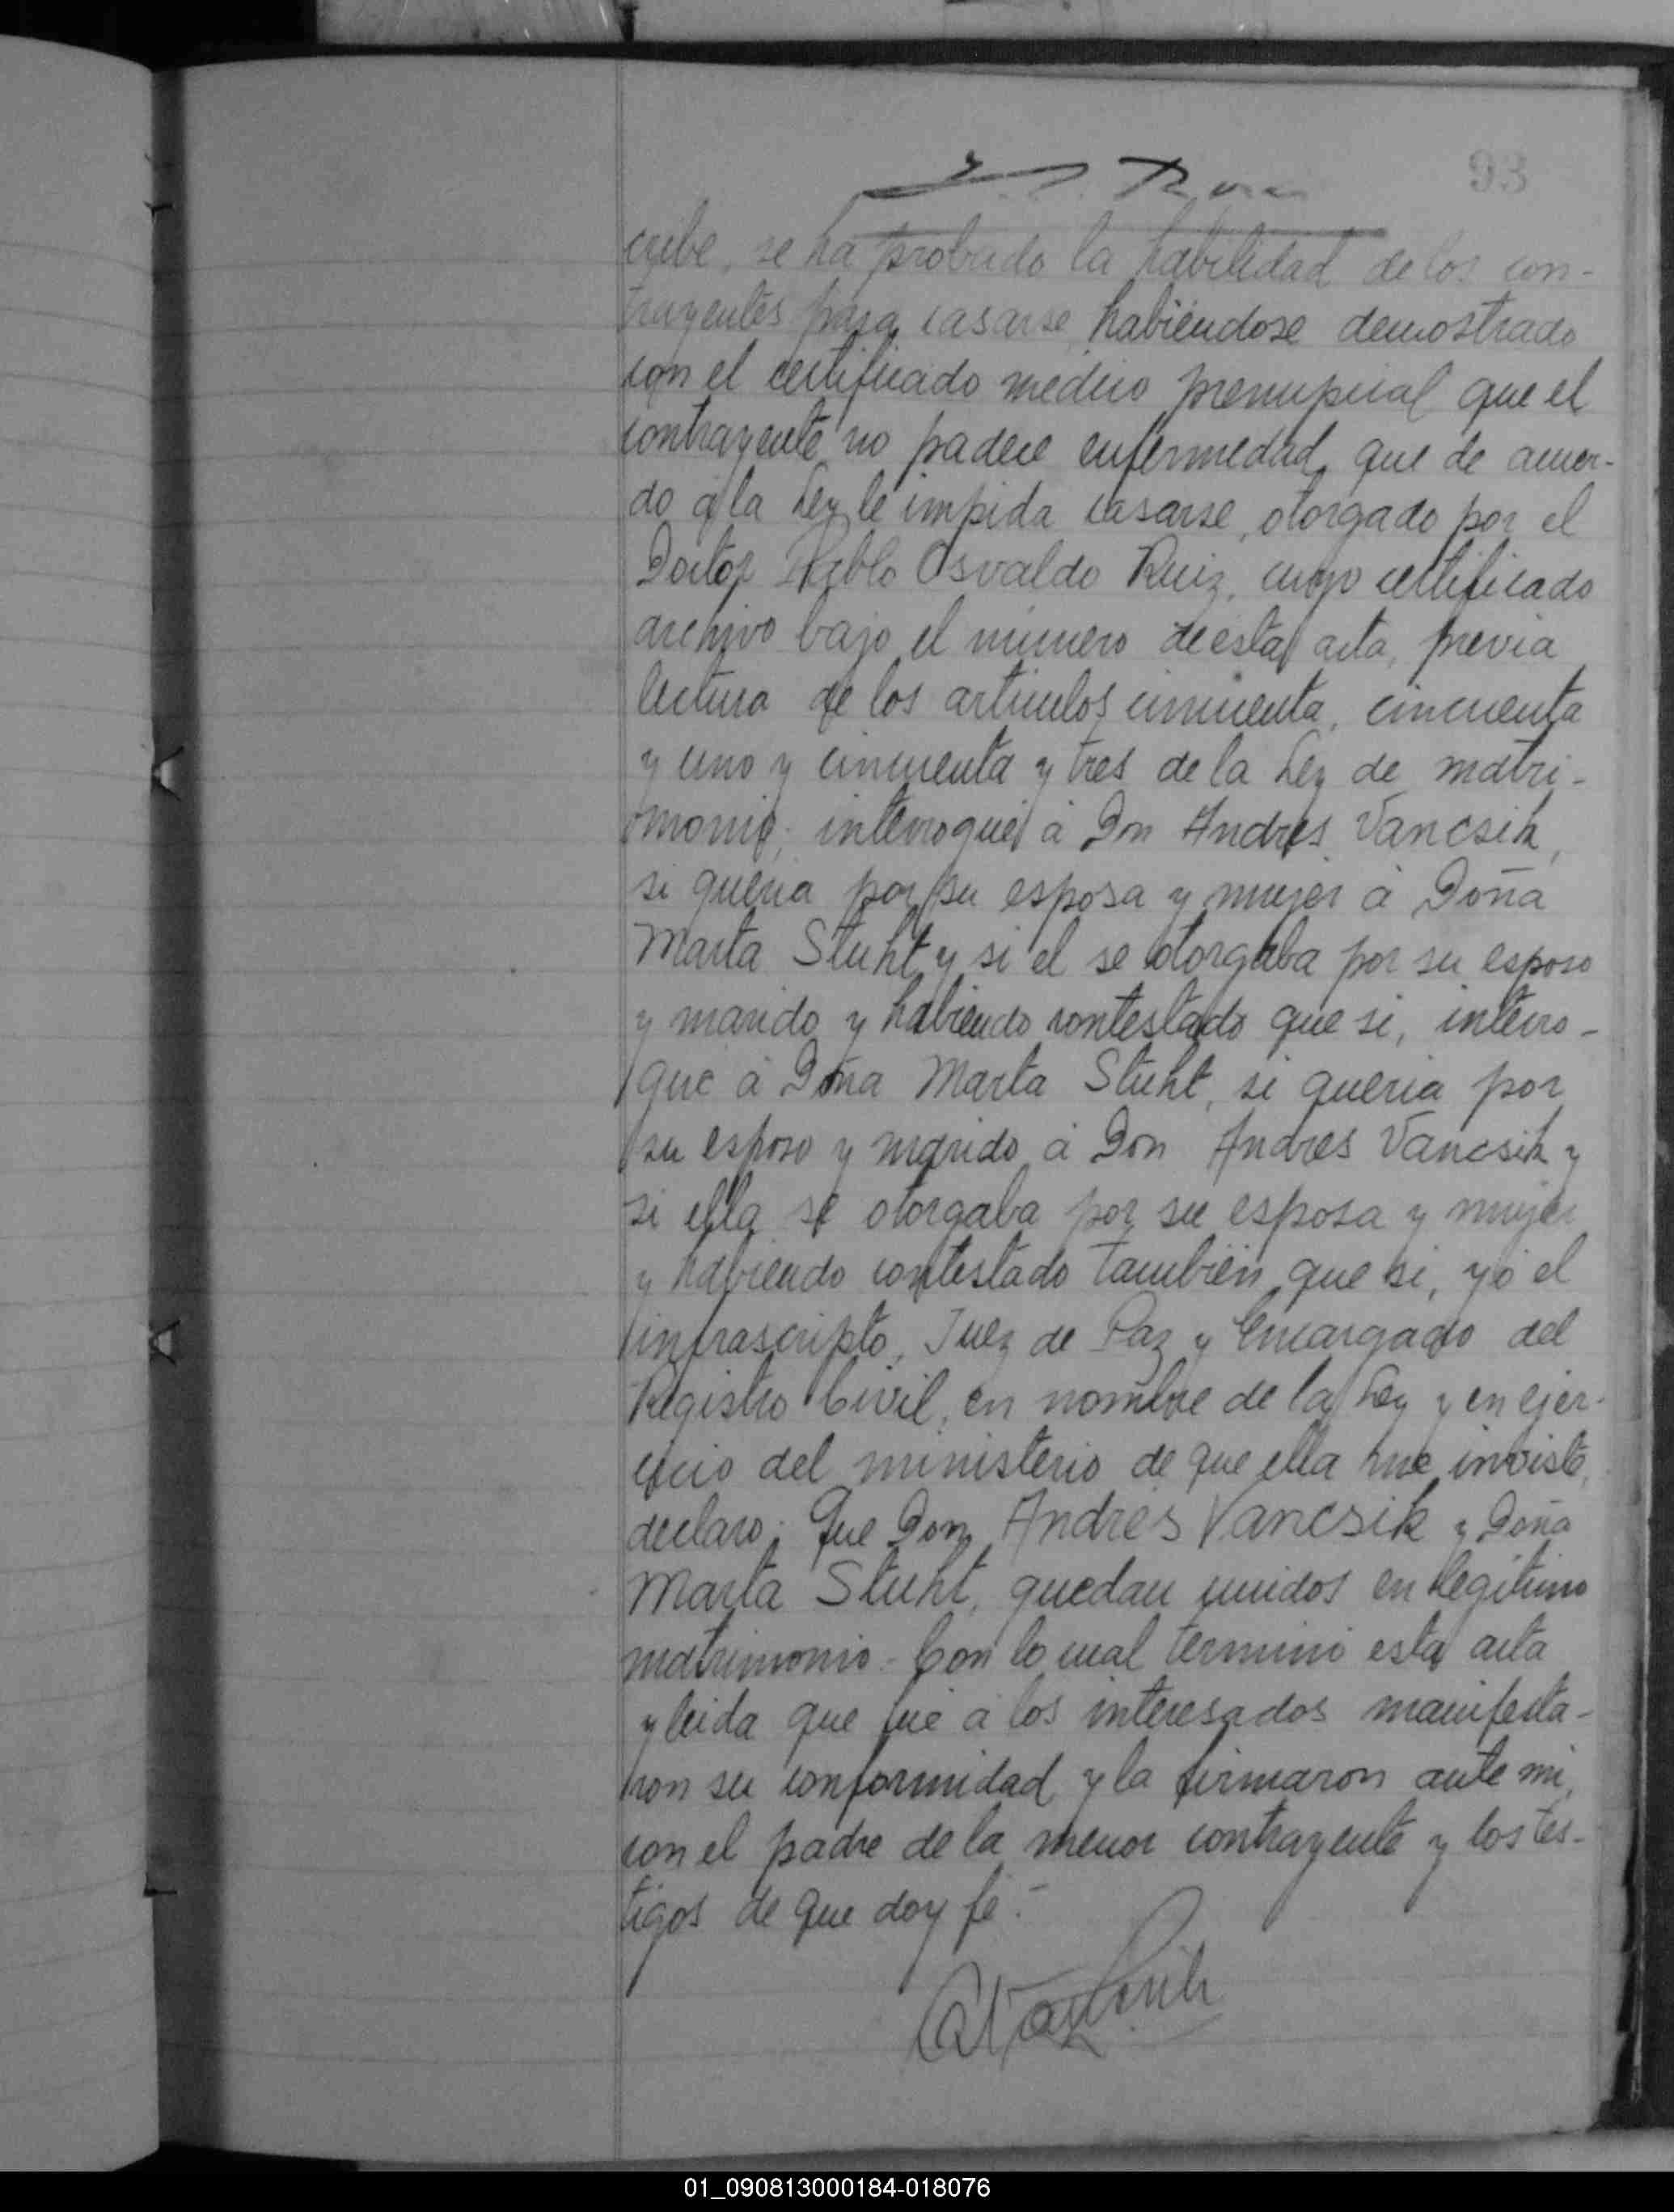 93
cribe, se ha probado la habilidad de los con-
trayentes para casarse, habiéndose demostrado
con el certificado medico prenupcial que el
contrayente no padece enfermedad, que de acuer-
do a la Ley le impida casarse, otorgado por el
Doctor Pablo Osvaldo Ruiz, cuyo certificado
archivo bajo el número de esta acta, previa
lectura de los articulos cincuenta, cincuenta
y uno y cincuenta y tres de la Ley de matri-
monio; interrogué á Don Andres Vancsik,
si queria por su esposa y mujer á Doña
Marta Stuht y si el se otorgaba por su esposo
y marido y habiendo contestado que si, interro-
gue á Doña Marta Stuht, si queria por
su esposo y marido á Don Andres Vancsik y
si ella se otorgaba por su esposa y mujer
y habiendo contestado también que si, yo el
infrascripto, Juez de Paz y Encargado del
Registro Civil, en nombre de la Ley y en ejer-
cicio del ministerio de que ella me inviste,
declaro; Que Don Andrés Vancsik y Doña
Marta Stuht, quedan unidos en legitimo
matrimonio.- Con lo cual terminó esta acta
y leida que fué á los interesados manifesta-
ron su conformidad y la firmaron ante mi,
con el padre de la menor contrayente y los tes-
tigos de que doy fé.-
A Vancsik
01_090813000184-018076